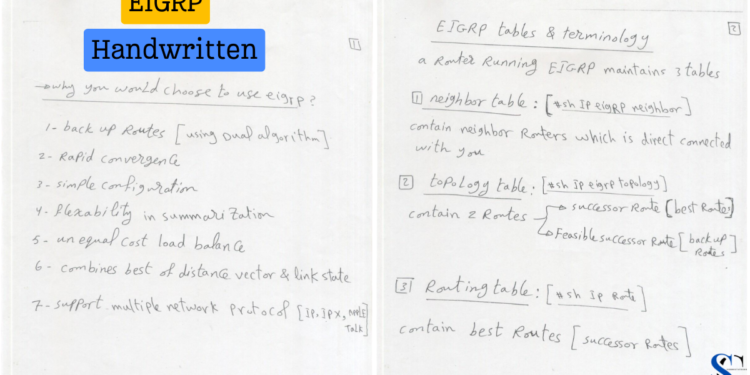 EIGRP
Handwritten
1
→ why you would choose to use eigrp ?
1- back up Routes [using Dual algorithm]
2- Rapid convergence
3- simple configuration
4- flexability in summarization
5- unequal cost load balance
6- combines best of distance vector & link state
7- support multiple network protocol [IP, IPX, Apple
Talk]
2
EIGRP tables & terminology
a Router Running EIGRP maintains 3 tables
1 neighbor table : [#sh IP eigRP neighbor]
contain neighbor Routers which is direct connected
with you
2 topology table : [#sh Ip eigrp topology]
contain 2 Routes → successor Route [best Routes]
→ Feasible successor Route [back up
Routes]
3 Routing table : [#sh Ip Route]
contain best Routes [successor Routes]
S